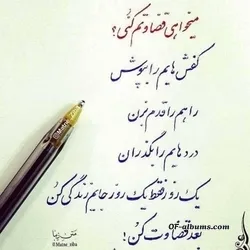 میخواهی قضاوتم کنی؟
کفش هایم را بپوش
راهم را قدم بزن
دردهایم را بگذران
یک روز فقط یک روز جایم زندگی کن
بعد قضاوت کن!
متن زیبا
@Matne_ziba
OF-albums.com